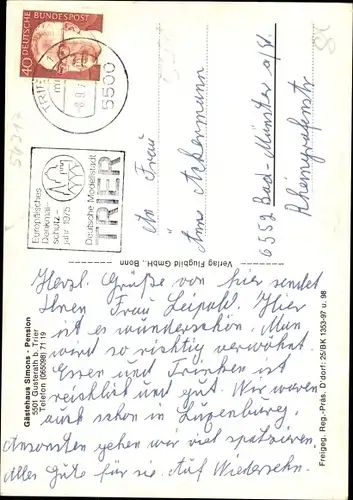 DEUTSCHE BUNDESPOST
40
TRIER
-8.9.7
5500
Europäisches
Denkmal-
schutz-
jahr 1975
Deutsche Modellstadt
TRIER
An Frau
Ackermann
6552 Bad-Münster a/St.
Rheingrafenstr
Verlag Flugbild GmbH. Bonn
Gästehaus Simons - Pension
5501 Gusterath b. Trier
Telefon (06588) 71 19
Herzl. Grüße von hier sendet
Ihnen Frau Leipold. Hier
ist es wunderschön. Man
wird so richtig verwöhnt.
Essen und Trinken ist
reichlich und gut. Wir waren
auch schon in Luxenburg.
Ansonsten gehen wir viel spatzieren.
Alles Gute für sie. Auf Wiedersehn.
Freigeg. Reg.-Präs. D'dorf: 25/BK 1353-97 u. 98